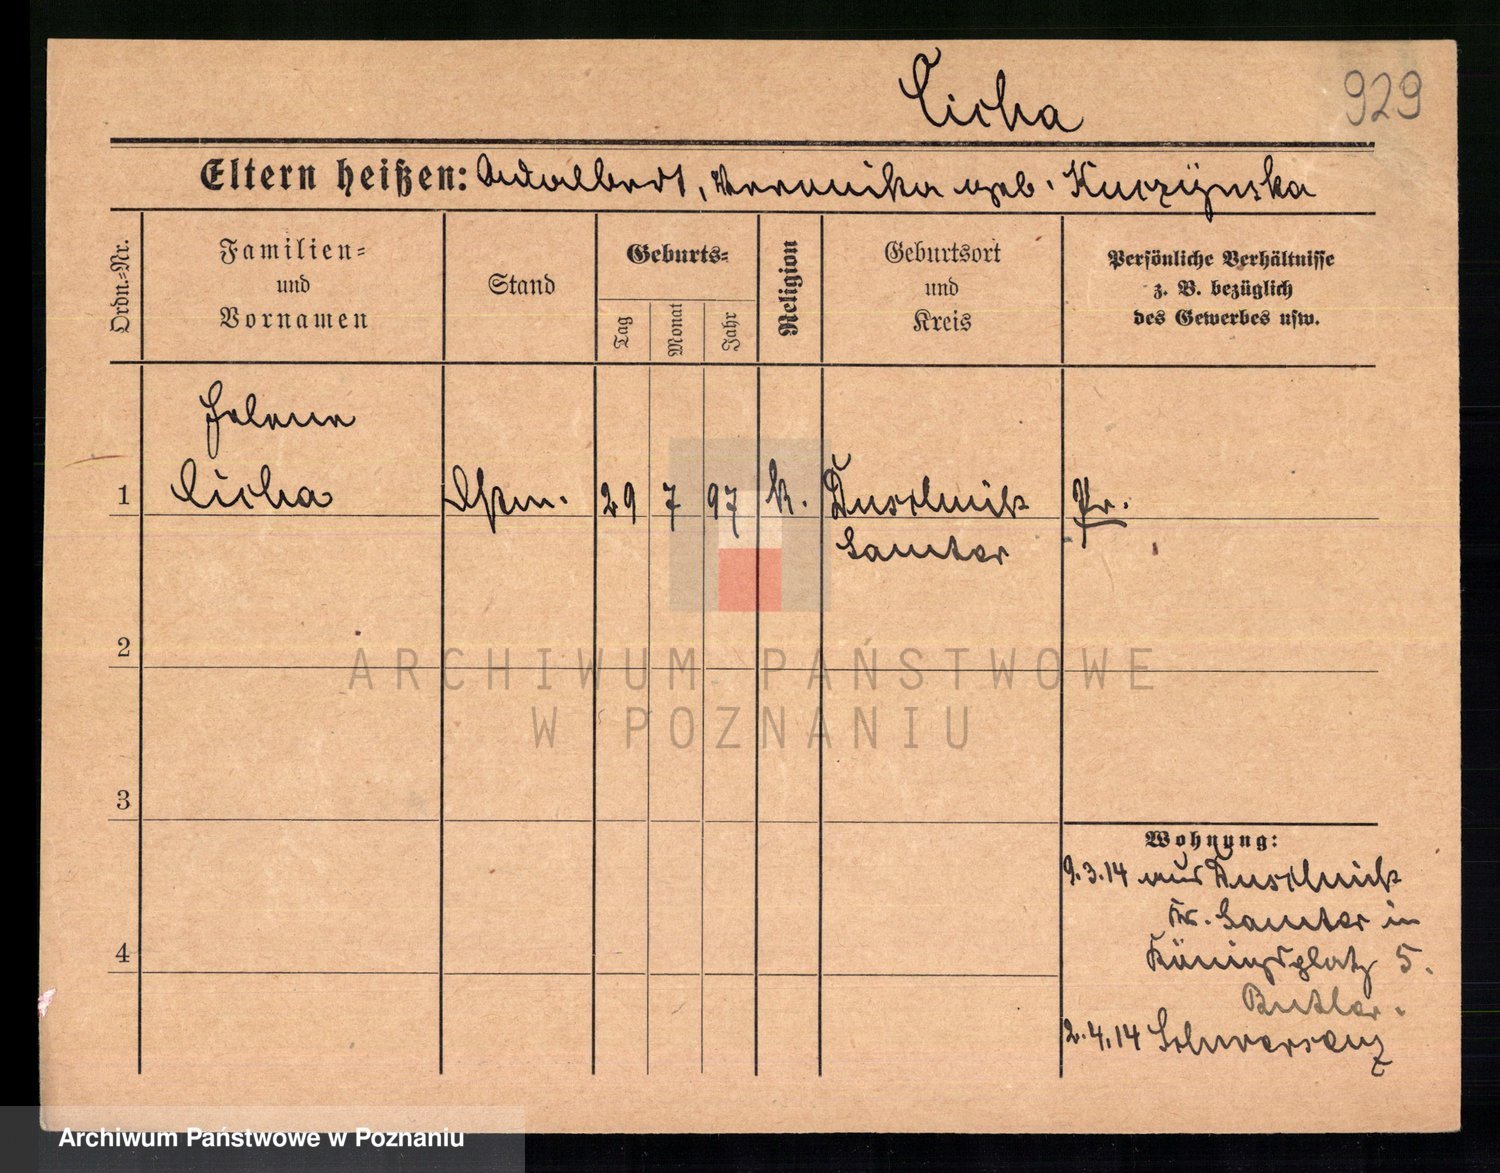 Cicha
929
Eltern heißen: Adalbert, Veronika geb. Kuczynska
Ordn.-Nr.
Familien- und Vornamen
Stand
Geburts-
Tag
Monat
Jahr
Religion
Geburtsort und Kreis
Persönliche Verhältnisse z. B. bezüglich des Gewerbes usw.
Helene
1 Cicha 29 7 97 k. Duschnik Pr.
Samter
2
3
4
Wohnung:
9.3.14 aus Duschnik
Kr. Samter in
Königsplatz 5.
Butler.
2.4.14 Schwersenz
ARCHIWUM PAŃSTWOWE
W POZNANIU
Archiwum Państwowe w Poznaniu